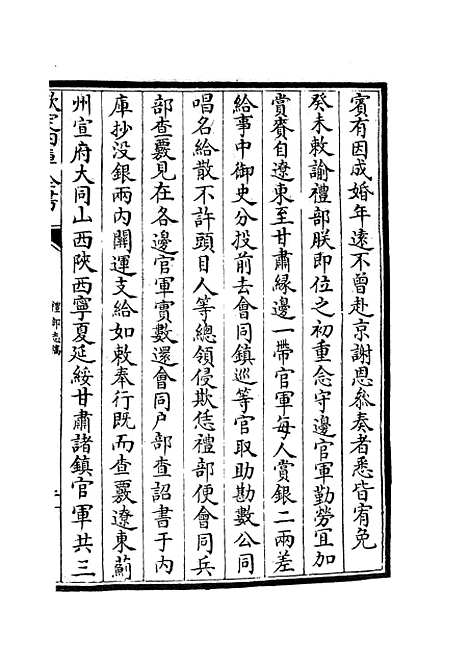 賓有因成婚年遠不曾赴京謝恩叅奏者悉皆宥免
癸未敕諭禮部朕即位之初重念守邊官軍勤勞宜加
賞賚自遼東至甘肅緣邊一帶官軍每人賞銀二兩差
給事中御史分投前去會同鎮巡等官取助勘數公同
唱名給散不許頭目人等總領侵欺恁禮部便會同兵
部查覈見在各邊官軍實數還會同户部查詔書于内
庫抄没銀兩内闗運支給如敕奉行既而查覈遼東薊
州宣府大同山西陜西寧夏延綏甘肅諸鎮官軍共三
欽定四庫全書
禮部志稿